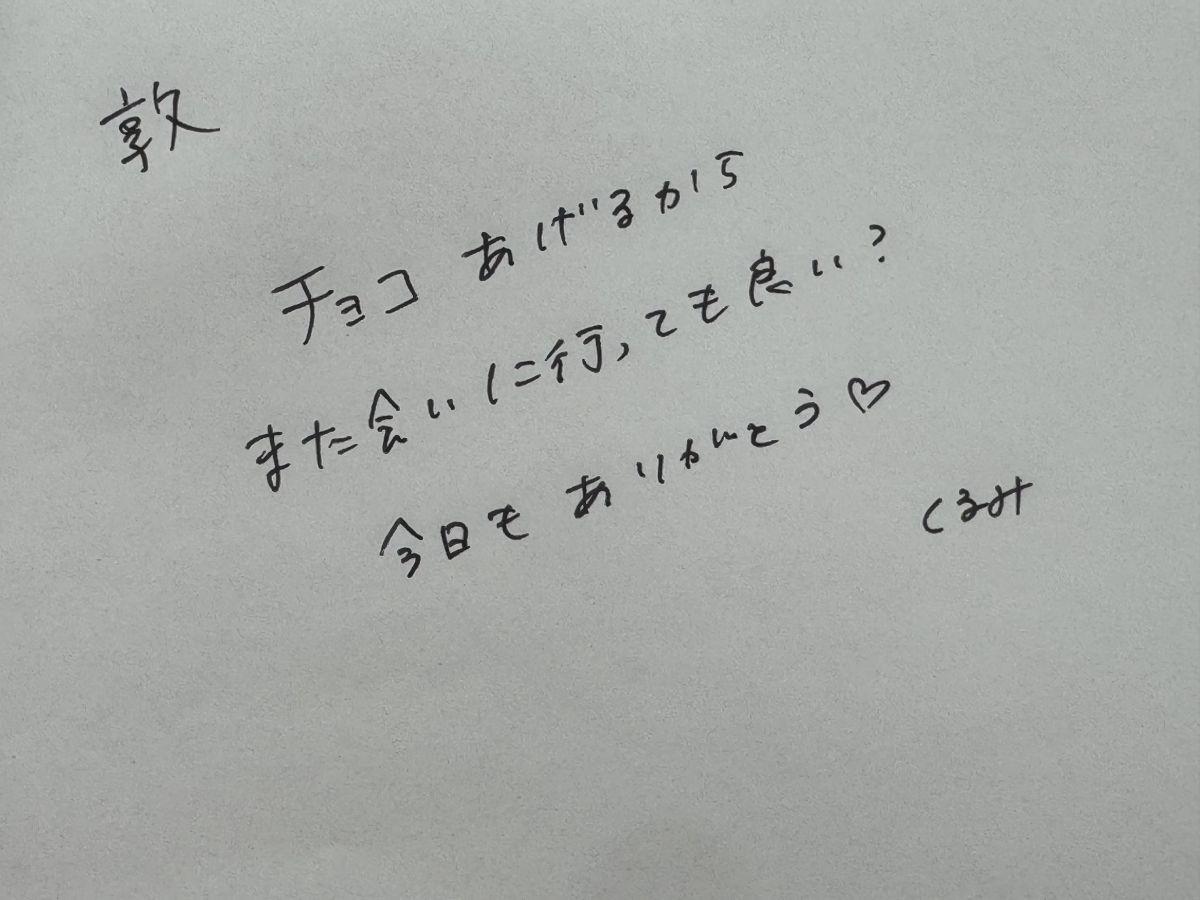 敦
チョコ あげるから
また会いに行っても良い?
今日も ありがとう♡
くるみ